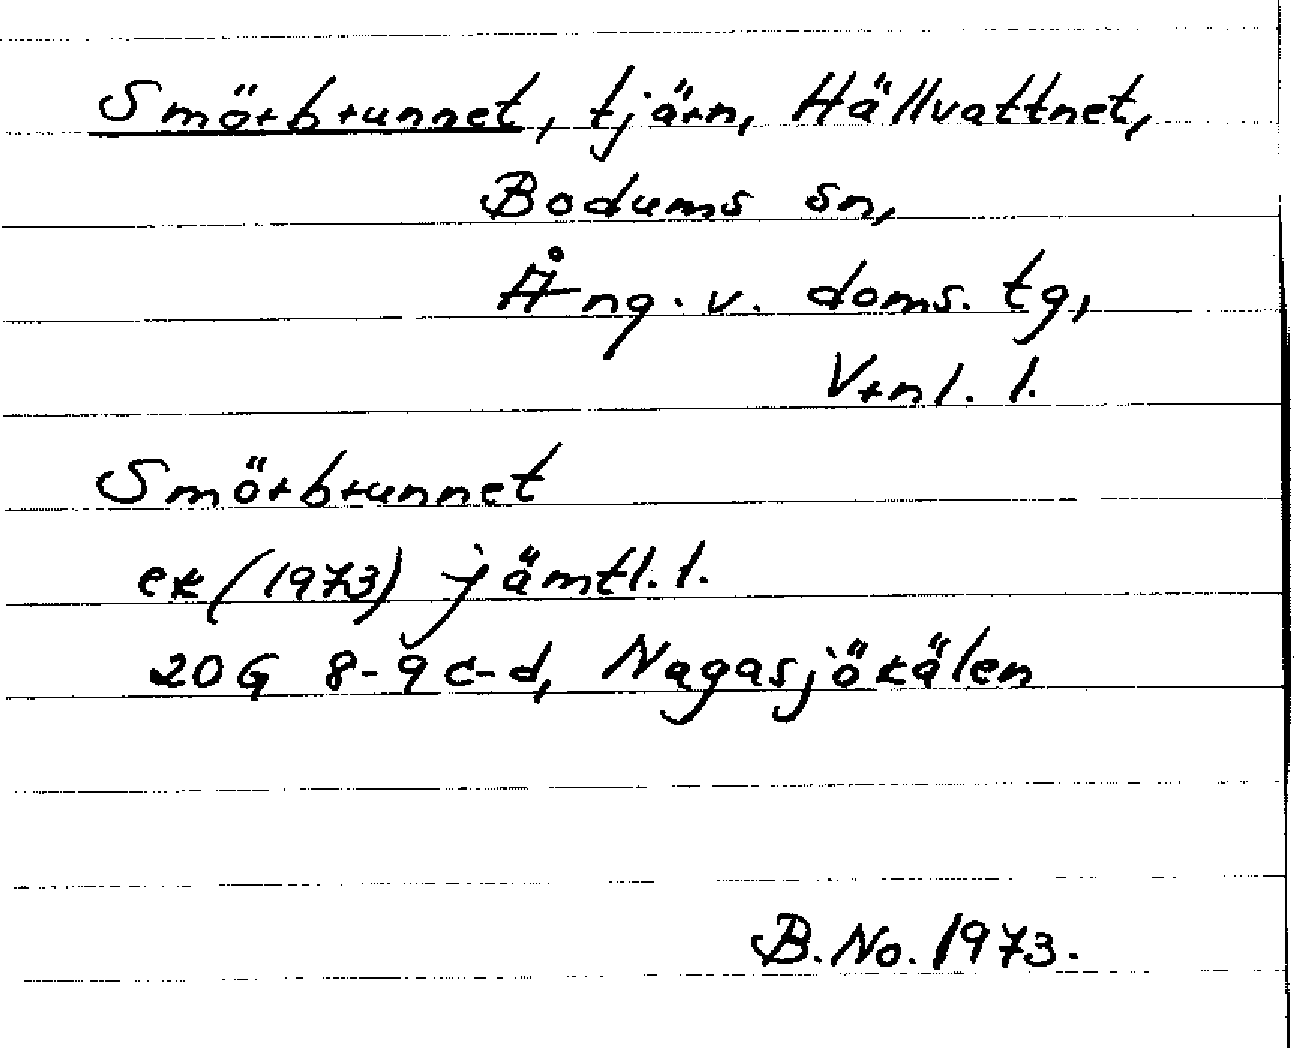 Smörbrunnet, tjärn, Hällvattnet,
Bodums sn,
Ång. v. doms. tg,
Vrnl. l.
Smörbrunnet
ek (1973) jämtl. l.
20 G 8-9 c-d, Nagasjökälen
B. No. 1973.